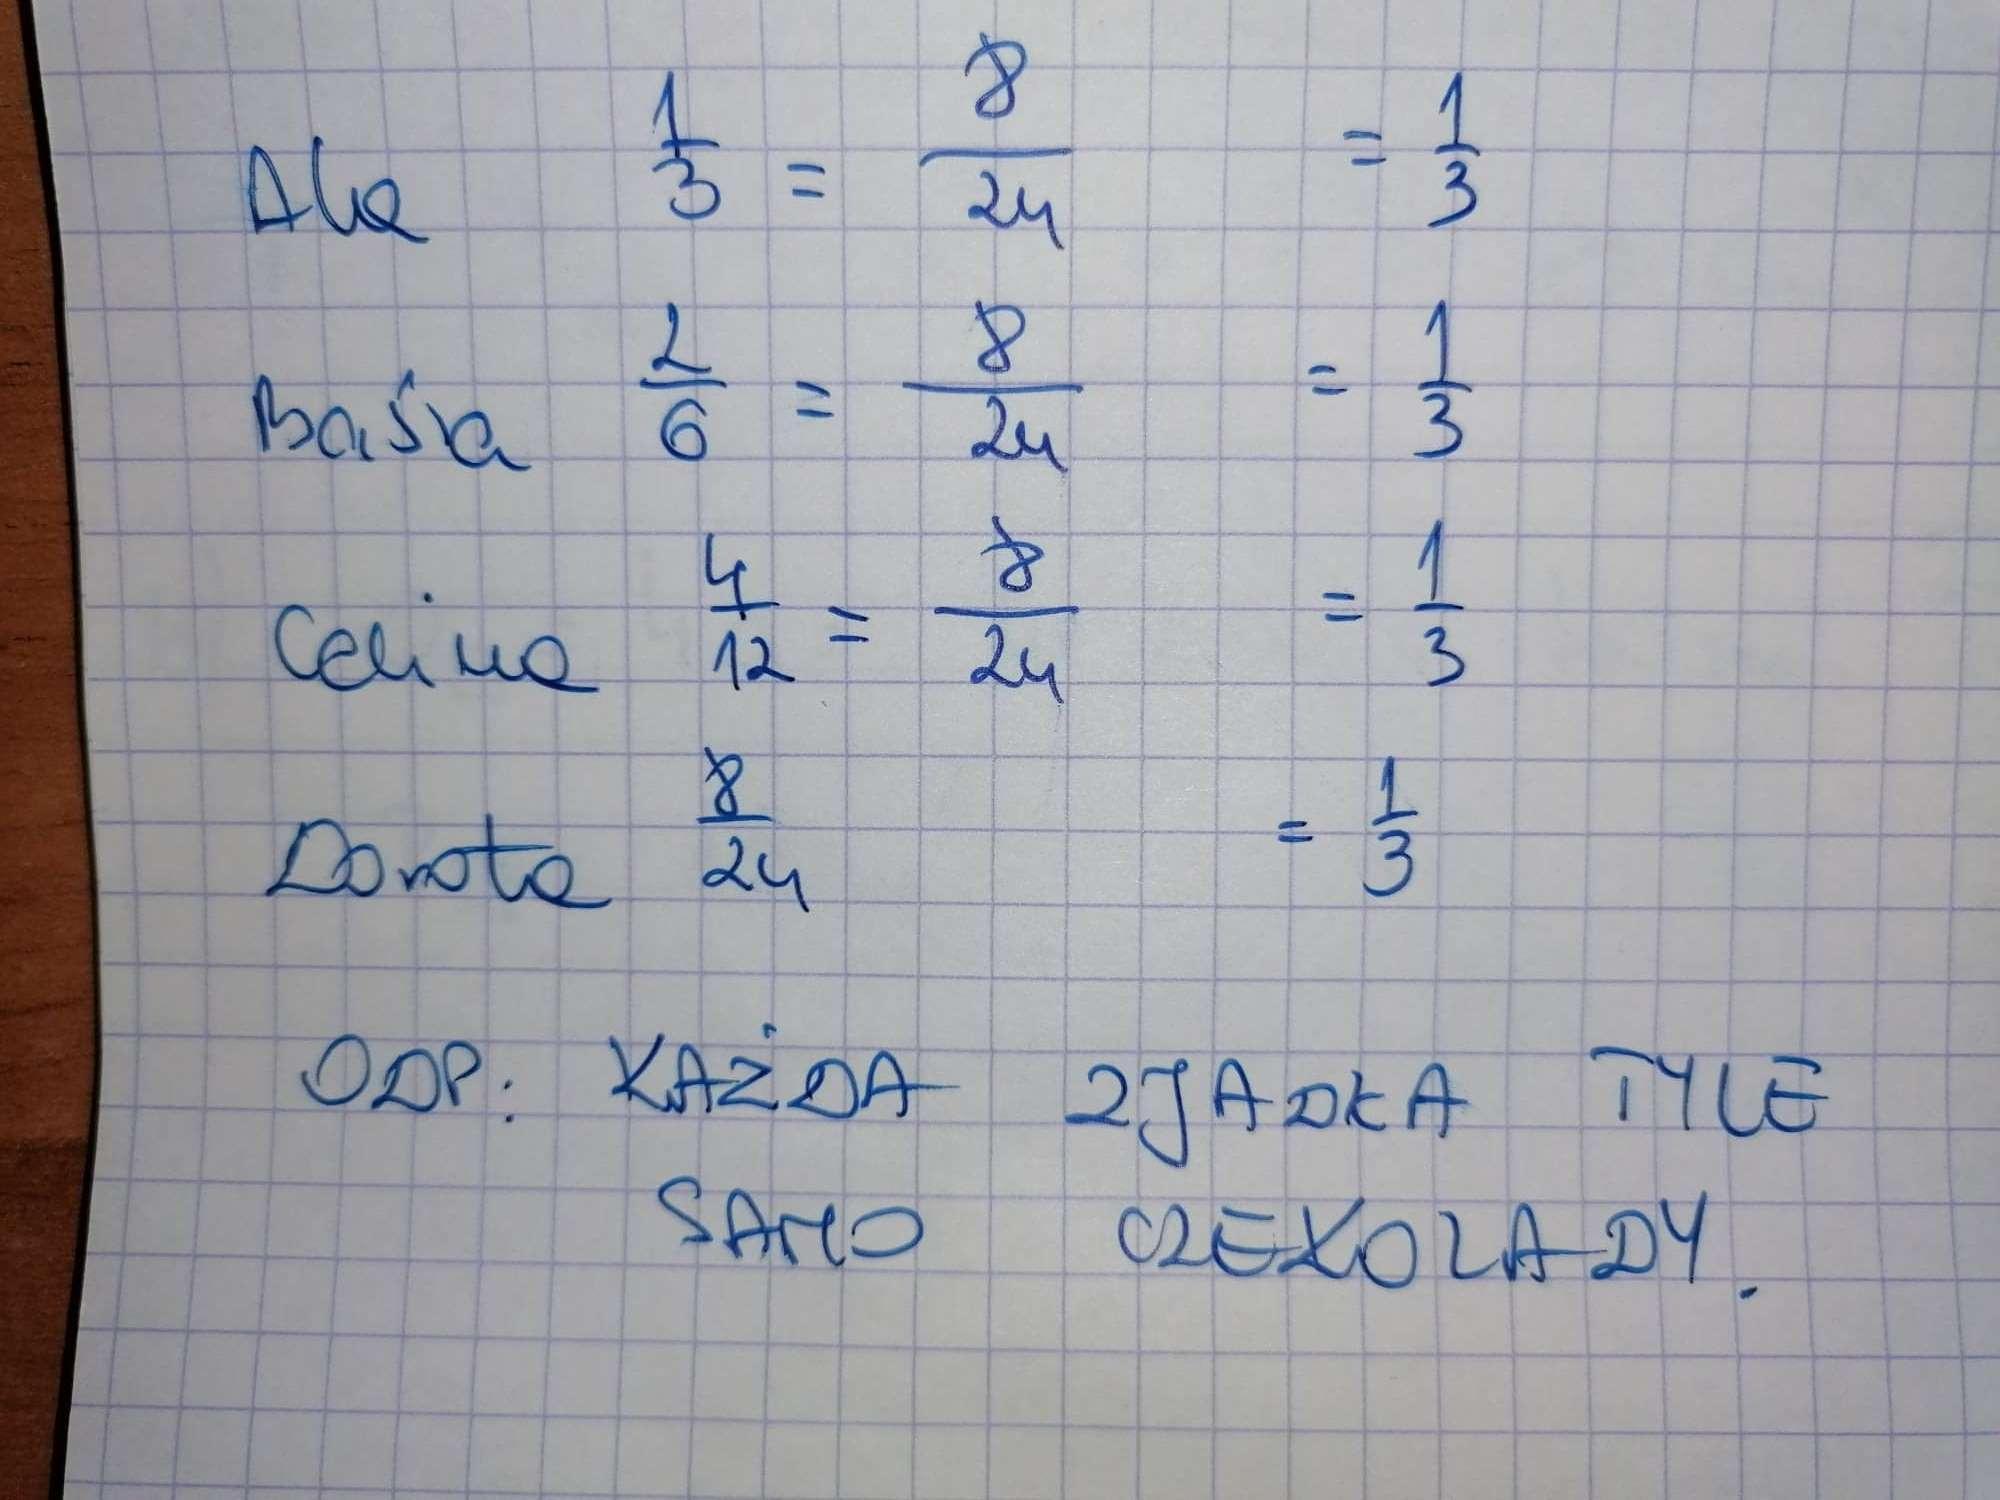 Ala 1/3 = 8/24 = 1/3
Basia 2/6 = 8/24 = 1/3
Celina 4/12 = 8/24 = 1/3
Dorota 8/24 = 1/3
ODP: KAŻDA ZJADŁA TYLE
SAMO CZEKOLADY.